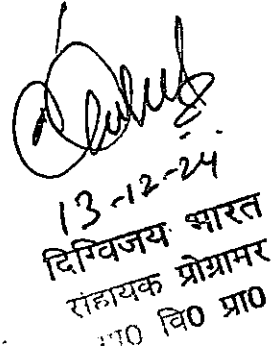 13-12-24
दिग्विजय भारत
सहायक प्रोग्रामर
वि0 प्रा0